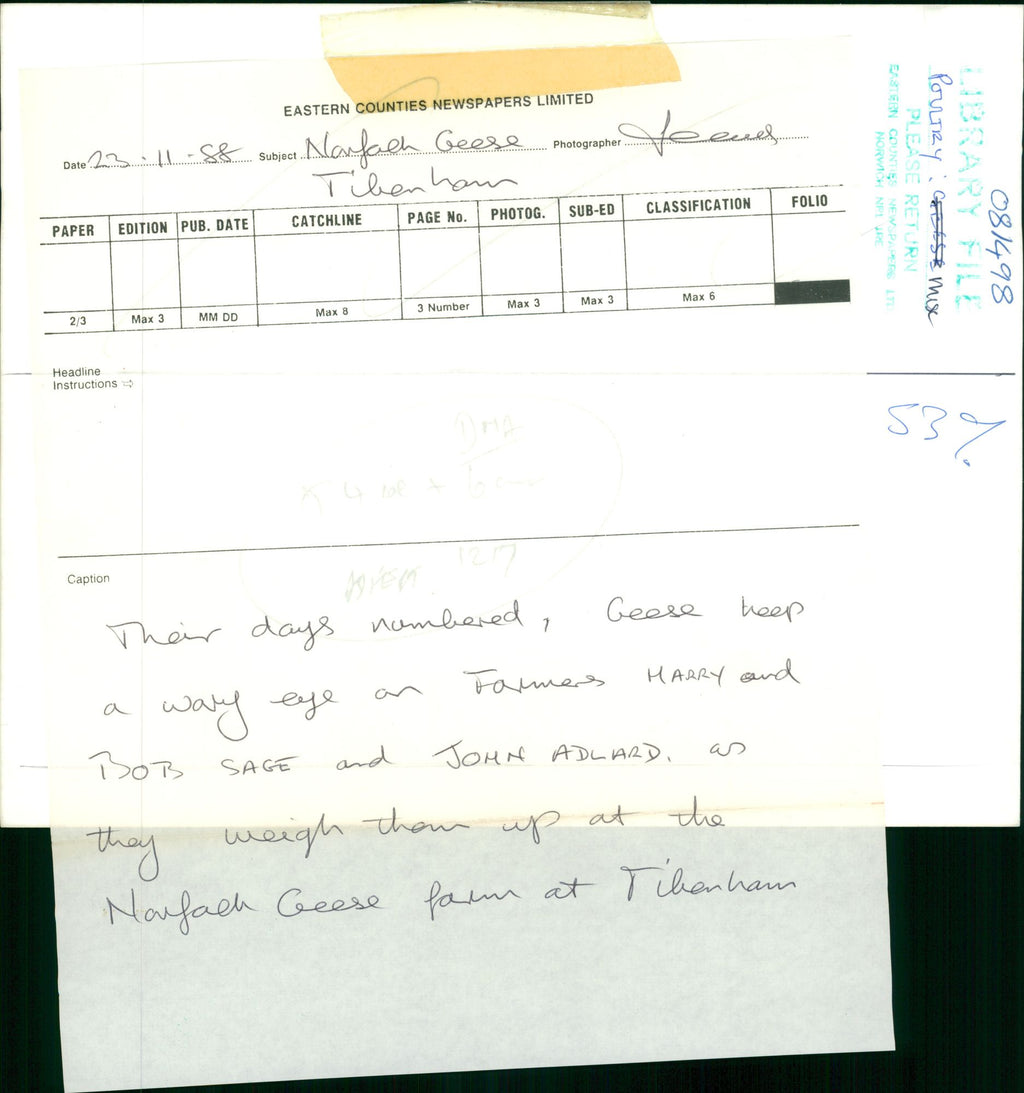 EASTERN COUNTIES NEWSPAPERS LIMITED
Date 23-11-88 Subject Norfolk Geese Photographer
Tibenham
PAPER EDITION PUB. DATE CATCHLINE PAGE No. PHOTOG. SUB-ED CLASSIFICATION FOLIO
2/3 Max 3 MM DD Max 8 3 Number Max 3 Max 3 Max 6
Headline
Instructions ⇨
Caption
Their days numbered, Geese keep
a wary eye on Farmers HARRY and
BOB SAGE and JOHN ADLARD. as
they weigh them up at the
Norfolk Geese farm at Tibenham
081498
LIBRARY FILE
POULTRY: GEESE MISC
PLEASE RETURN
EASTERN COUNTIES NEWSPAPERS LTD.
NORWICH NR1 1RE
53%